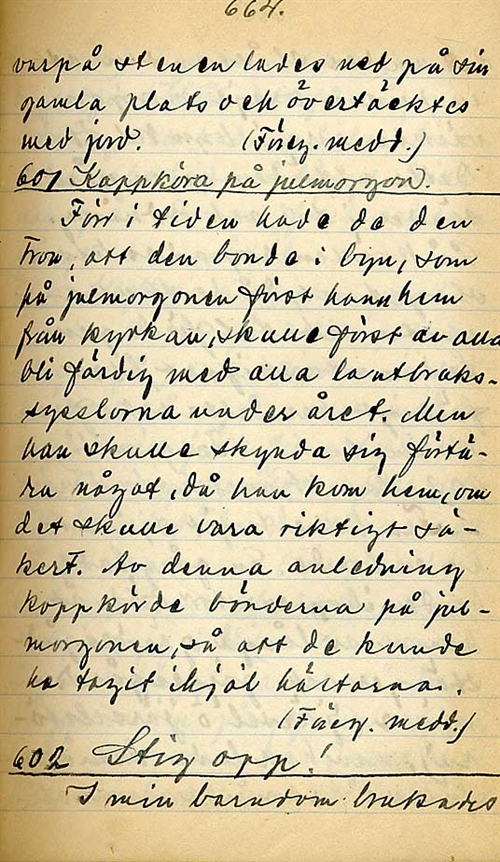 664.
varpå stenen lades ned på sin
gamla plats och övertäcktes
med jord. (Föreg. medd.)
601 Kappköra på julmorgon.
Förr i tiden hade de den
tron, att den bonde i byn, som
på julmorgonen först hann hem
från kyrkan, skulle först av alla
bli färdig med alla lantbruks-
sysslorna under året. Men
han skulle skynda sig förtä-
ra något, då han kom hem, om
det skulle vara riktigt sä-
kert. Av denna anledning
kappkörde bönderna på jul-
morgonen, så att de kunde
ha tagit ihjäl hästarna.
(Föreg. medd.)
602 Stig opp!
I min barndom brukades